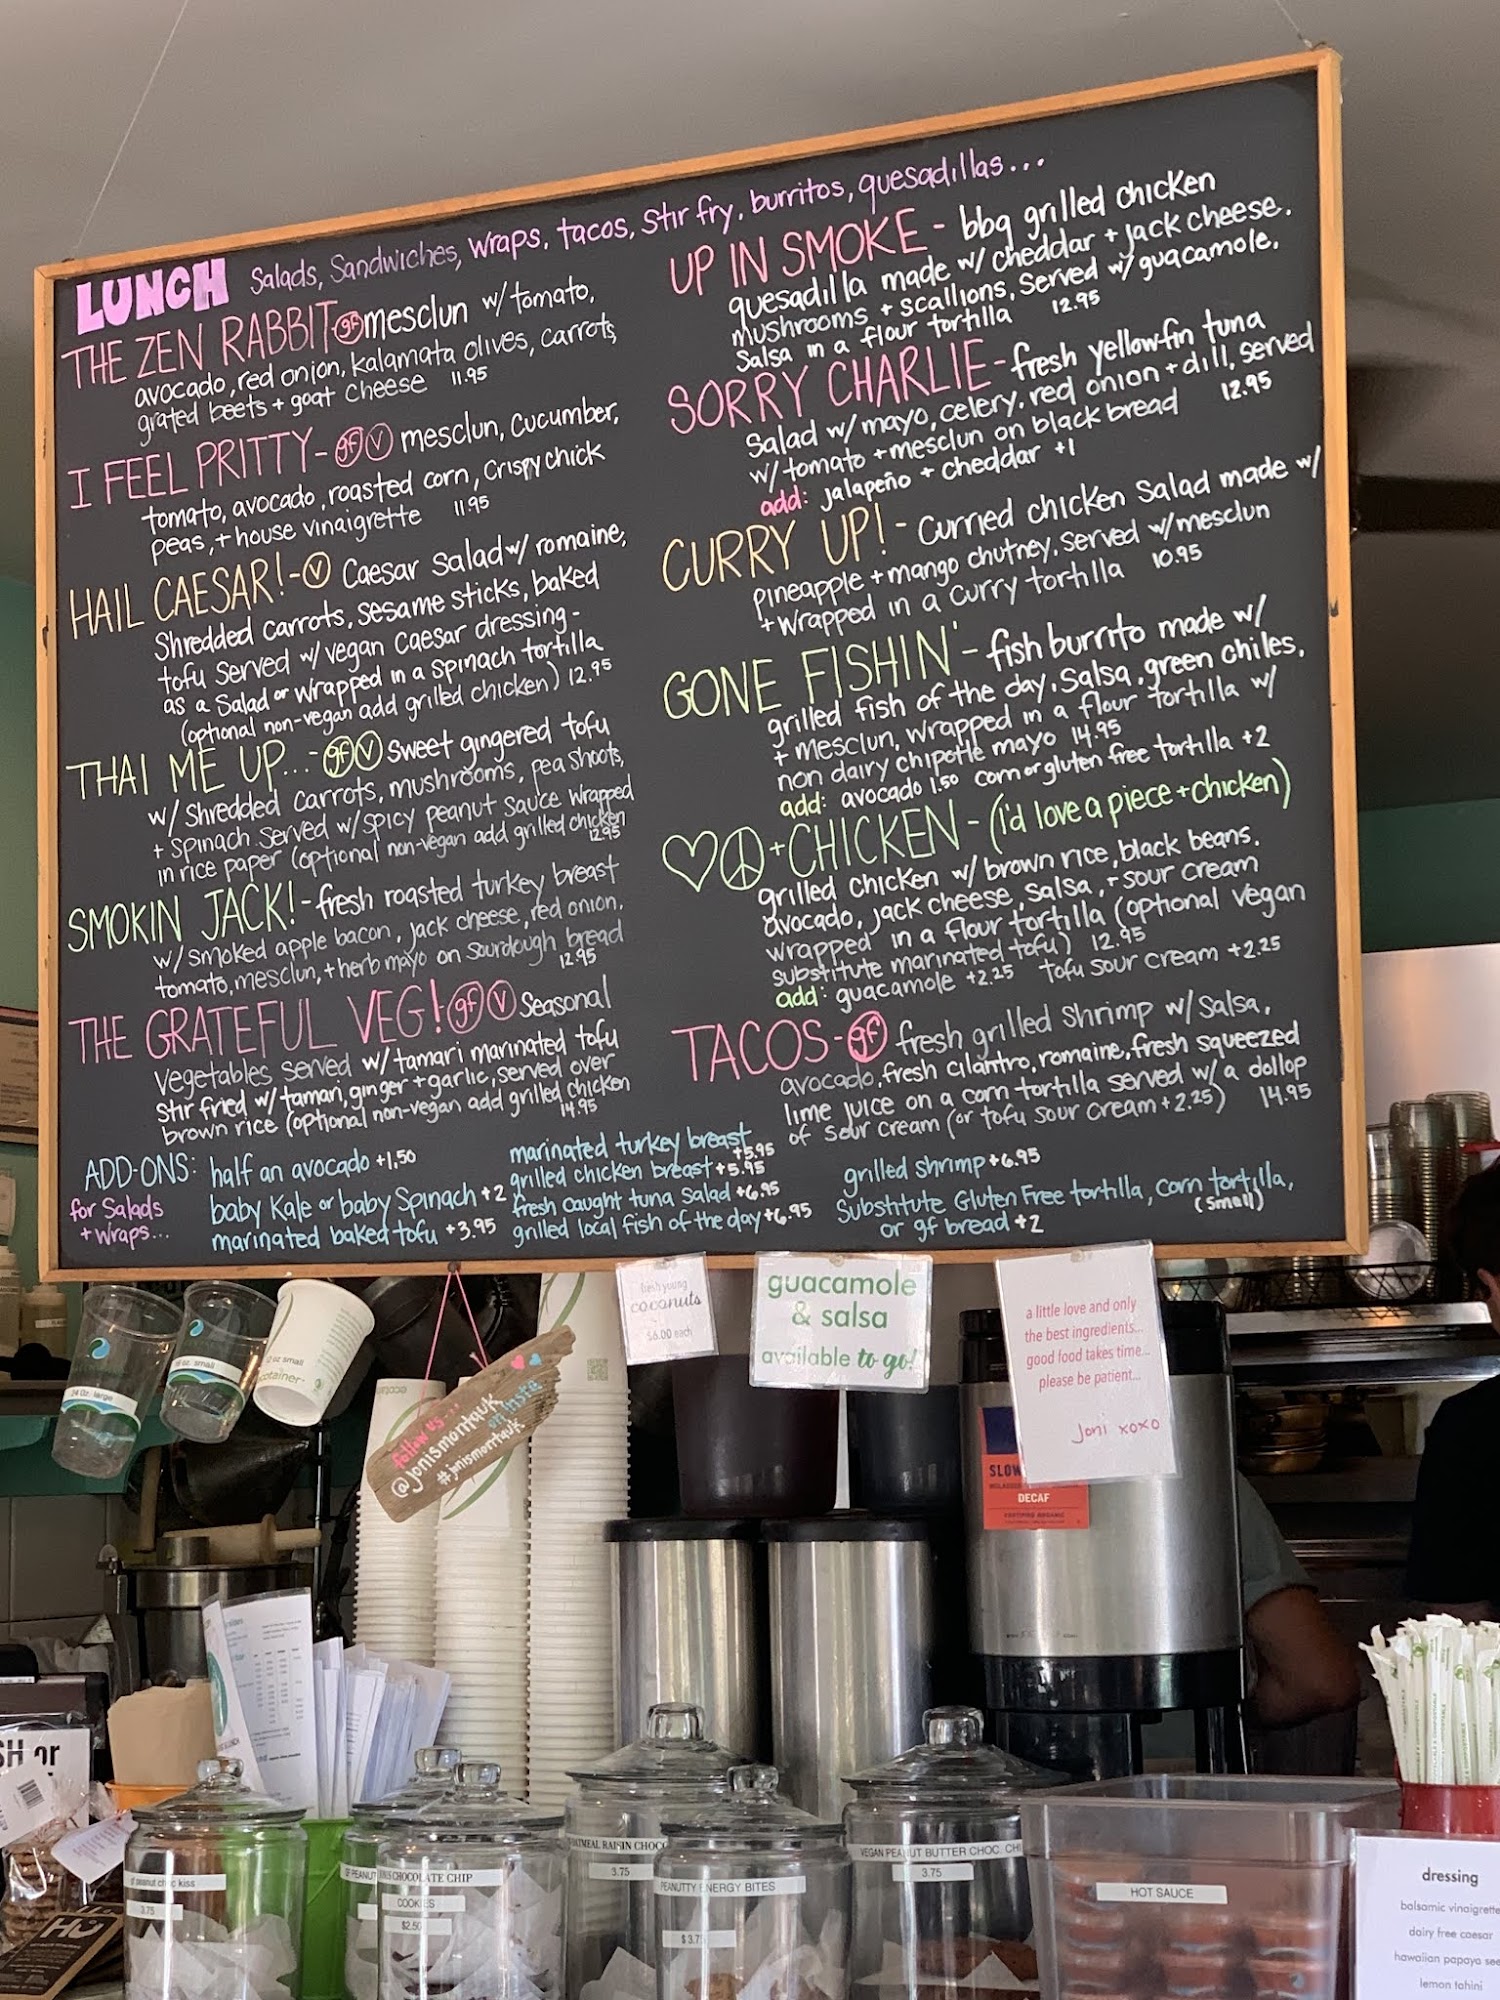 LUNCH Salads, Sandwiches, wraps, tacos, stir fry, burritos, quesadillas...
THE ZEN RABBIT- gf mesclun w/ tomato,
avocado, red onion, kalamata olives, carrots,
grated beets + goat cheese 11.95
I FEEL PRITTY- gf V mesclun, cucumber,
tomato, avocado, roasted corn, crispy chick
peas, + house vinaigrette 11.95
HAIL CAESAR!- V Caesar Salad w/ romaine,
Shredded carrots, sesame sticks, baked
tofu served w/ vegan caesar dressing -
as a Salad or wrapped in a spinach tortilla
(optional non-vegan add grilled chicken) 12.95
THAI ME UP...- gf V Sweet gingered tofu
w/ Shredded carrots, mushrooms, pea shoots,
+ spinach served w/ spicy peanut sauce wrapped
in rice paper (optional non-vegan add grilled chicken
12.95
SMOKIN JACK!- fresh roasted turkey breast
w/ smoked apple bacon, jack cheese, red onion,
tomato, mesclun, + herb mayo on sourdough bread
12.95
THE GRATEFUL VEG! gf V Seasonal
vegetables served w/ tamari marinated tofu
stir fried w/ tamari, ginger + garlic, served over
brown rice (optional non-vegan add grilled chicken
14.95
UP IN SMOKE - bbq grilled chicken
quesadilla made w/ cheddar + jack cheese,
mushrooms + scallions, served w/ guacamole,
Salsa in a flour tortilla 12.95
SORRY CHARLIE- fresh yellowfin tuna
Salad w/ mayo, celery, red onion + dill, served
w/ tomato + mesclun on black bread 12.95
add: jalapeño + cheddar +1
CURRY UP! - Curried chicken Salad made w/
pineapple + mango chutney, served w/ mesclun
+ wrapped in a curry tortilla 10.95
GONE FISHIN' - fish burrito made w/
grilled fish of the day, salsa, green chiles,
+ mesclun, wrapped in a flour tortilla w/
non dairy chipotle mayo 14.95
add: avocado 1.50 corn or gluten free tortilla +2
♡☮+CHICKEN - (i'd love a piece + chicken)
grilled chicken w/ brown rice, black beans,
avocado, jack cheese, salsa, + sour cream
wrapped in a flour tortilla (optional vegan
substitute marinated tofu) 12.95
add: guacamole +2.25 tofu sour cream +2.25
TACOS- gf fresh grilled shrimp w/ salsa,
avocado, fresh cilantro, romaine, fresh squeezed
lime juice on a corn tortilla served w/ a dollop
of sour cream (or tofu sour cream +2.25) 14.95
ADD-ONS:
for Salads
+ wraps...
half an avocado +1.50
baby Kale or baby Spinach +2
marinated baked tofu +3.95
marinated turkey breast
+5.95
grilled chicken breast +5.95
fresh caught tuna salad +6.95
grilled local fish of the day +6.95
grilled shrimp +6.95
Substitute Gluten Free tortilla, corn tortilla,
(small)
or gf bread +2
24 oz. large
oz. small
oz small
ecotainer
follow us...
@jonismontauk
on insta
#jonismontauk
fresh young
coconuts
$6.00 each
guacamole
& salsa
available to go!
a little love and only
the best ingredients...
good food takes time...
please be patient...
Joni xoxo
SLOW
DECAF
CERTIFIED ORGANIC
SH or
HU
gf peanut choc kiss
3.75
GF PEANUT
CHOCOLATE CHIP
COOKIES
$2.50
OATMEAL RAISIN CHOC
3.75
PEANUTTY ENERGY BITES
$3.7
VEGAN PEANUT BUTTER CHOC. CHI
3.75
HOT SAUCE
dressing
balsamic vinaigrette
dairy free caesar
hawaiian papaya see
lemon tahini